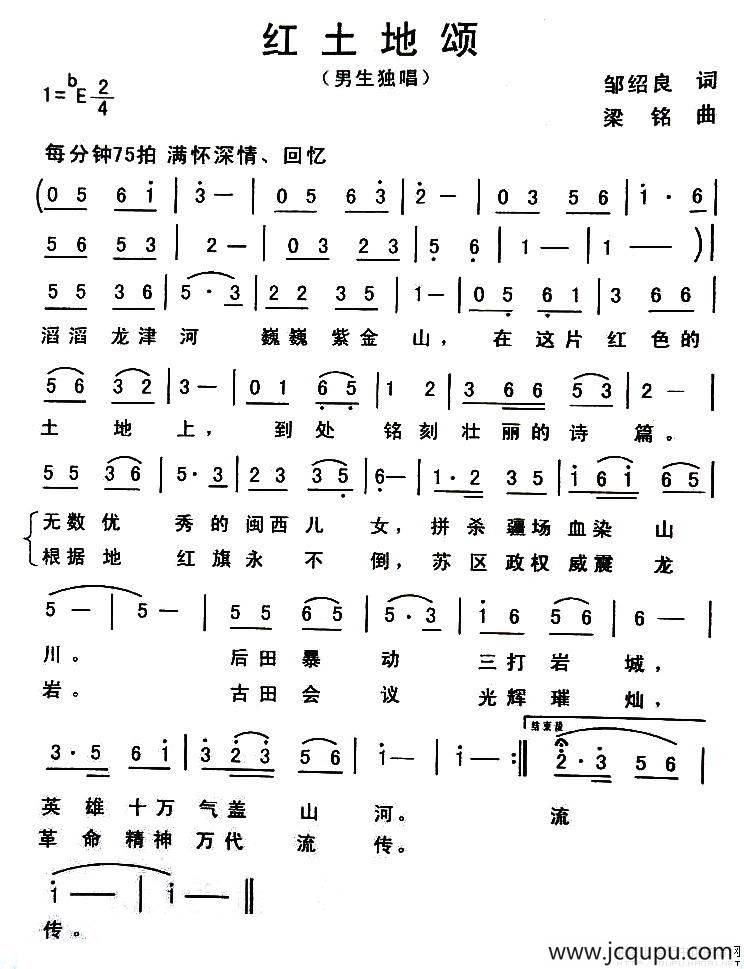 红土地颂
（男生独唱）
1=ᵇE 2/4
邹绍良 词
梁 铭 曲
每分钟75拍 满怀深情、回忆
(0 5 6 i | 3 — | 0 5 6 3 | 2 — | 0 3 5 6 | i · 6 |
5 6 5 3 | 2 — | 0 3 2 3 | 5 6 | 1 — | 1 — )|
5 5 3 6 | 5 · 3 | 2 2 3 5 | 1 — | 0 5 6 1 | 3 6 6 |
滔滔 龙津 河 巍巍 紫金 山， 在 这片 红色的
5 6 3 2 | 3 — | 0 1 6 5 | 1 2 | 3 6 6 5 3 | 2 — |
土 地 上， 到处 铭刻 壮丽的诗 篇。
5 5 3 6 | 5 · 3 | 2 3 3 5 | 6 — | 1 · 2 3 5 | i 6 i 6 5 |
无数优 秀的闽西儿 女，拼杀疆场血染山
根据地 红旗永不 倒，苏区政权威震龙
5 — | 5 — | 5 5 6 5 | 5 · 3 | i 6 5 6 | 6 — |
川。 后田暴 动 三打岩 城，
岩。 古田会 议 光辉璀 灿，
3 · 5 6 i | 3 2 3 5 6 | i — | i — :‖ 结束段 2 · 3 5 6 |
英雄十万气盖山 河。 流
革命精神万代流 传。
i — | i — ‖
传。
www.jcqupu.com